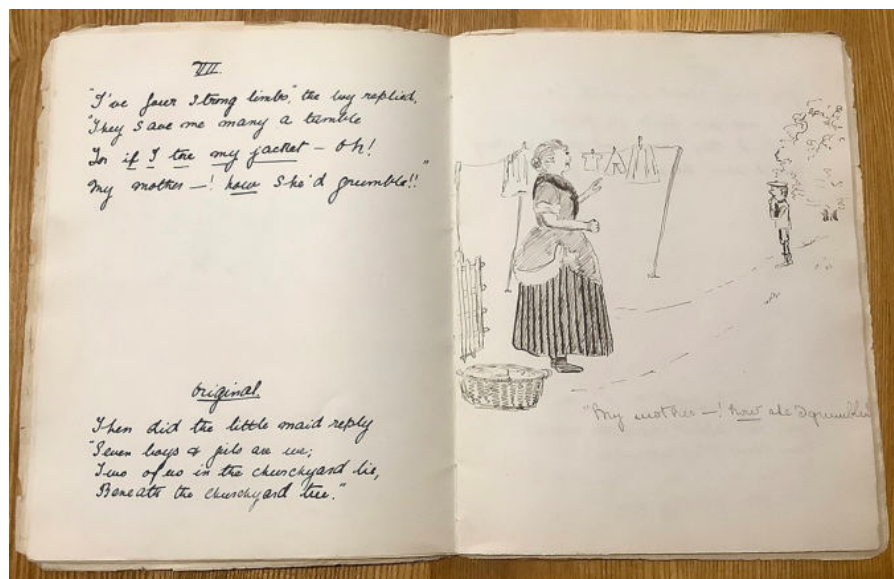 VIII.
"I've four strong limbs," the boy replied,
"They save me many a tumble
For if I tore my jacket – oh!
My mother –! how she'd grumble!!"
Original.
Then did the little maid reply
"Seven boys & girls are we;
Two of us in the churchyard lie,
Beneath the churchyard tree."
"My mother –! how she'd grumble